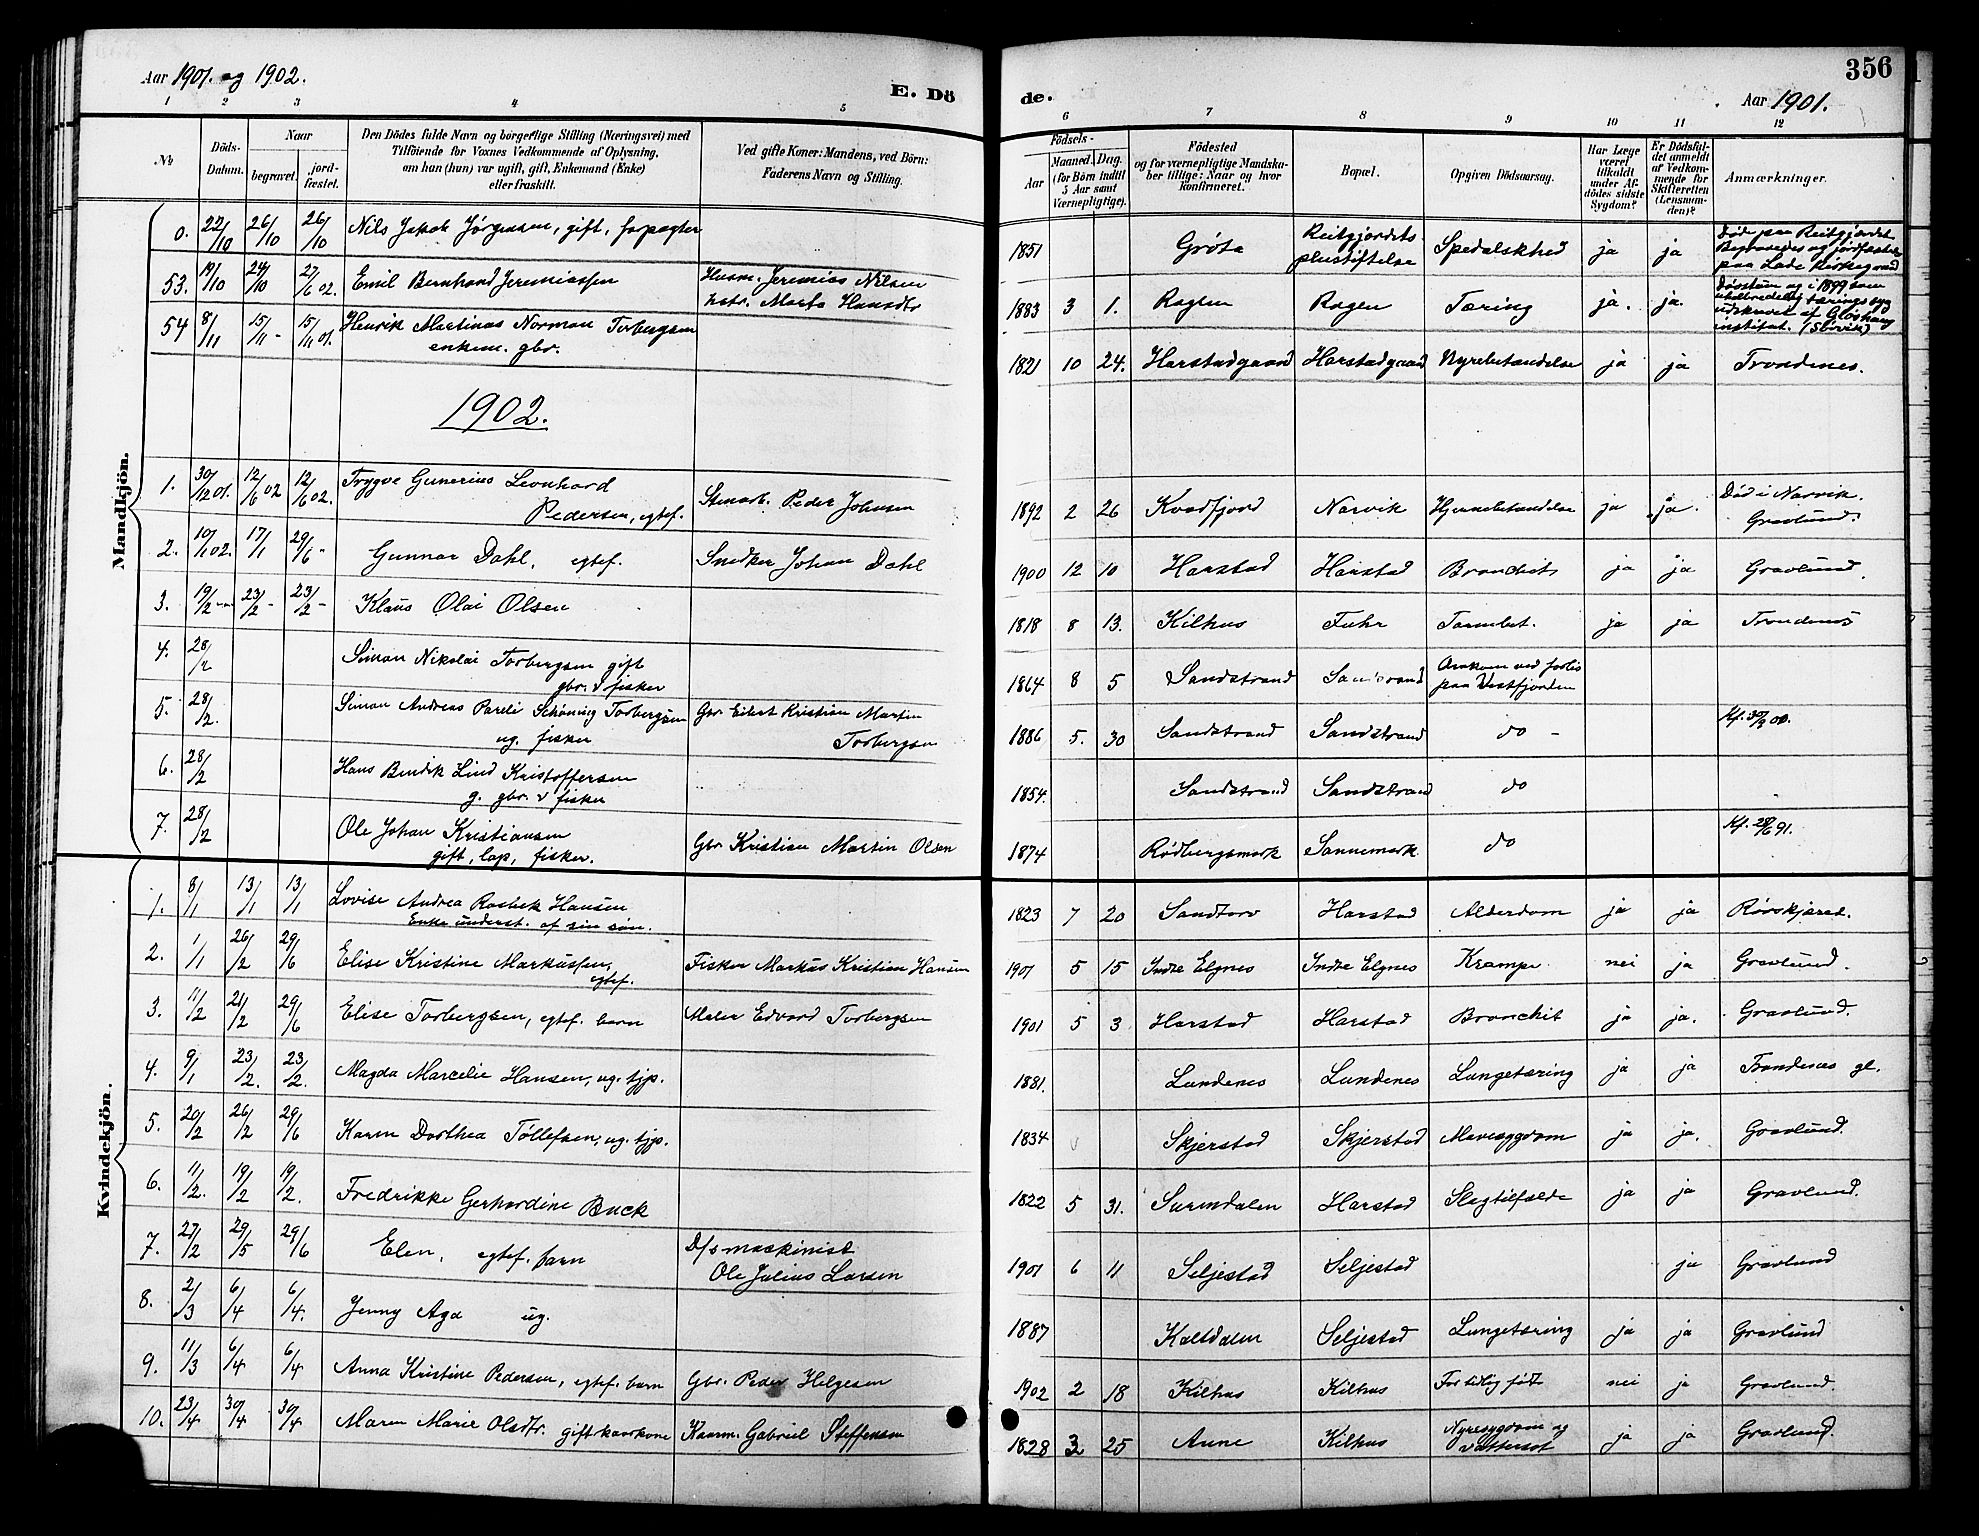 Aar 1901. og 1902.
E. Dö
de.
356
Aar 1901.
1 2 3 4 5 6 7 8 9 10 11 12
No
Döds-Datum.
Naar
begravet.
jordfæstet.
Den Dödes fulde Navn og borgerlige Stilling (Næringsvei) med
Tilföiende for Voxnes Vedkommende af Oplysning,
om han (hun) var ugift, gift, Enkemand (Enke)
eller fraskilt.
Ved gifte Koner: Mandens, ved Börn:
Faderens Navn og Stilling.
Födsels-
Aar
Maaned. Dag.
(for Börn indtil
5 Aar samt
Værnepligtige).
Födested
og for værnepligtige Mandskaber tillige: Naar og hvor
konfirmeret.
Bopæl.
Opgiven Dödsaarsag.
Har Læge
været
tilkaldt
under Afdödes sidste
Sygdom?
Er Dödsfaldet anmeldt
af Vedkommende for
Skifteretten
(Lensmanden)?
Anmærkninger.
Mandkjön.
0. 22/10 26/10 26/10 Nils Jakob Jörgensen, gift, forpagter 1851 Grøta Reitgjerdets pleiestiftelse Spedalskhed ja ja Død paa Reitgjerdet Begravedes og jordfæstedes paa Lade Kirkegaard
53. 19/10 24/10 27/6 02. Emil Bernhard Jeremiassen Husm. Jeremias Nilsen hstr. Marta Hansdtr 1883 3 1. Rogen Rogen Tæring ja. ja. Døvstum og i 1899 som
54 8/11 15/11 - 15/11 01. Henrik Martinus Norman Torbergsen enkem. gbr. 1821 10 24. Harstadgaard Harstadgaard Nyrebetændelse ja ja Trondenes.
1902.
1. 30/12 01. 12/6 02 12/6 02. Trygve Gunerius Leonhard Pedersen, egtef. Stenarb. Peder Johnsen 1892 2 26 Kvædfjord Narvik Hjernebetændelse ja ja. Død i Narvik. Gravlund.
2. 10/1 02. 17/1 29/6 - Gunnar Dahl, egtef. Snedker Johan Dahl 1900 12 10 Harstad Harstad Bronchit ja ja Gravlund.
3. 19/2 - 23/2 - 23/2 - Klaus Olai Olsen 1818 8 13. Kilhus Fuhr Tarmbet. ja ja Trondenes
4. 28/2 Simon Nikolai Torbergsen gift gbr. & fisker 1864 8 5 Sandstrand Sandstrand Omkom ved forlis paa Vestfjorden
5. 28/2. Simon Andreas Pareli Schöning Torbergsen ug. fisker Gbr Eilert Kristian Martin Torbergsen 1886 5. 30 Sandstrand Sandstrand do -
6. 28/2 Hans Bendik Lind Kristoffersen g. gbr. & fisker 1854. Sandstrand Sandstrand do
7. 28/2 Ole Johan Kristiansen gift, lap, fisker. Gbr Kristian Martin Olsen 1874 Rødbergsmark Sannemark do Kf. 28/6 91.
Kvindekjön.
1. 8/1 13/1 13/1 Lovise Andrea Rosbek Hansen Enke underst. af sin søn. 1823 7 20 Sandtorv Harstad Alderdom ja ja Røvskjæret.
2. 1/1 26/2 29/6 Elise Kristine Markussen, egtef. Fisker Markus Kristian Hansen 1901 5 15 Indre Elgnes Indre Elgnes Krampe nei ja Gravlund.
3. 11/2 21/2 29/6 Elise Torbergsen, egtef. barn Maler Edvard Torbergsen 1901 5 3 Harstad Harstad Bronchit ja ja. Gravlund.
4. 9/1 23/2. 23/2. Magda Marcelie Hansen, ug. tjp. 1881. Lundenes Lundenes Lungetæring ja ja Trondenes gl.
5. 20/2 26/2 29/6 Karen Dorthea Tøllefsen, ug. tjp. 1834 Skjerstad Skjerstad Mavesygdom ja ja. Gravlund.
6. 11/2. 19/2 19/2. Fredrikke Gerhardine Buck 1822 5 31. Surendalen Harstad Slagtilfælde ja ja Gravlund.
7. 27/2 29/5 29/6 Elen, egtef. barn D/s maskinist Ole Julius Larsen 1901 6 11 Seljestad Seljestad ja Gravlund
8. 2/3 6/4 6/4. Jenny Aga ug. 1887 Kaltdalen Seljestad Lungetæring ja ja Gravlund
9. 11/3 6/4 6/4 Anna Kristine Pedersen, egtef. barn Gbr. Peder Helgesen 1902 2 18 Kilhus Kilhus For tidlig født nei ja Gravlund.
10. 23/4 30/4 30/4 Maren Marie Olsdtr. gift kaarkone Kaarm. Gabriel Steffensen 1828 3 25 Aune Kilhus Nyresygdom og Vattersot ja ja Gravlund.